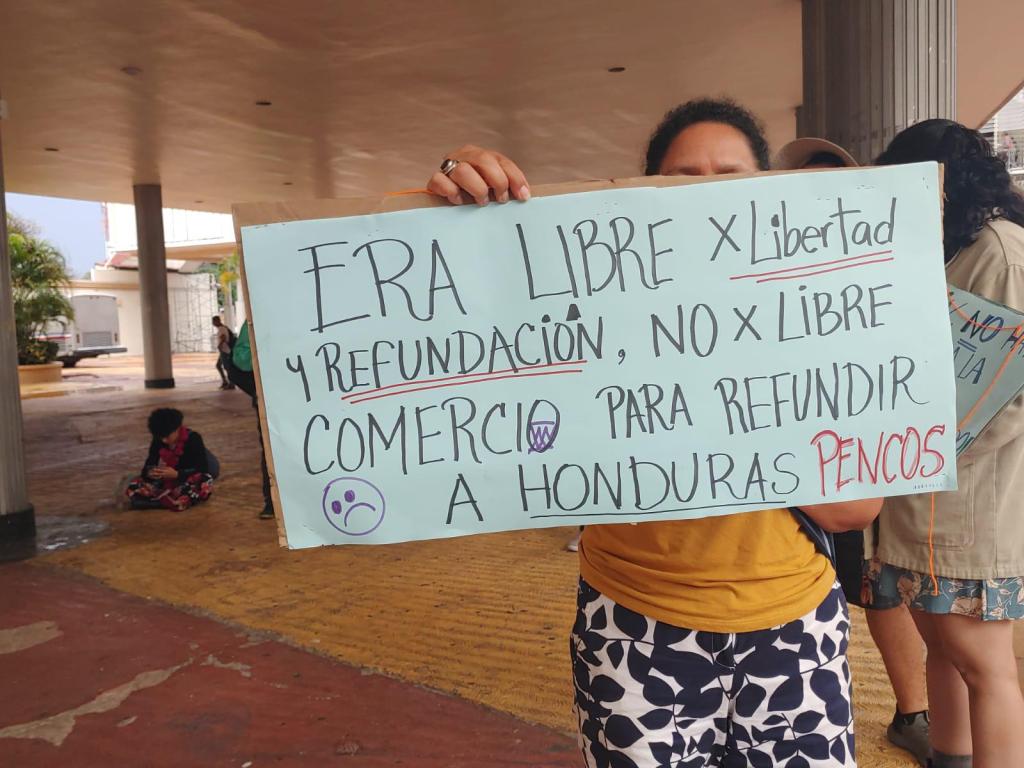 ERA LIBRE X Libertad
Y REFUNDACIÓN, NO X LIBRE
COMERCIO PARA REFUNDIR
A HONDURAS PENCOS
NO
LA